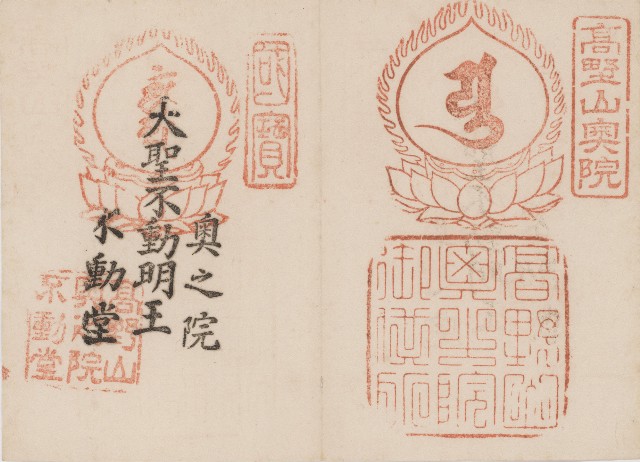 高野山奥院
高野山
奥之院
國寶
奥之院
大聖不動明王
不動堂
高野山
奥之院
不動堂